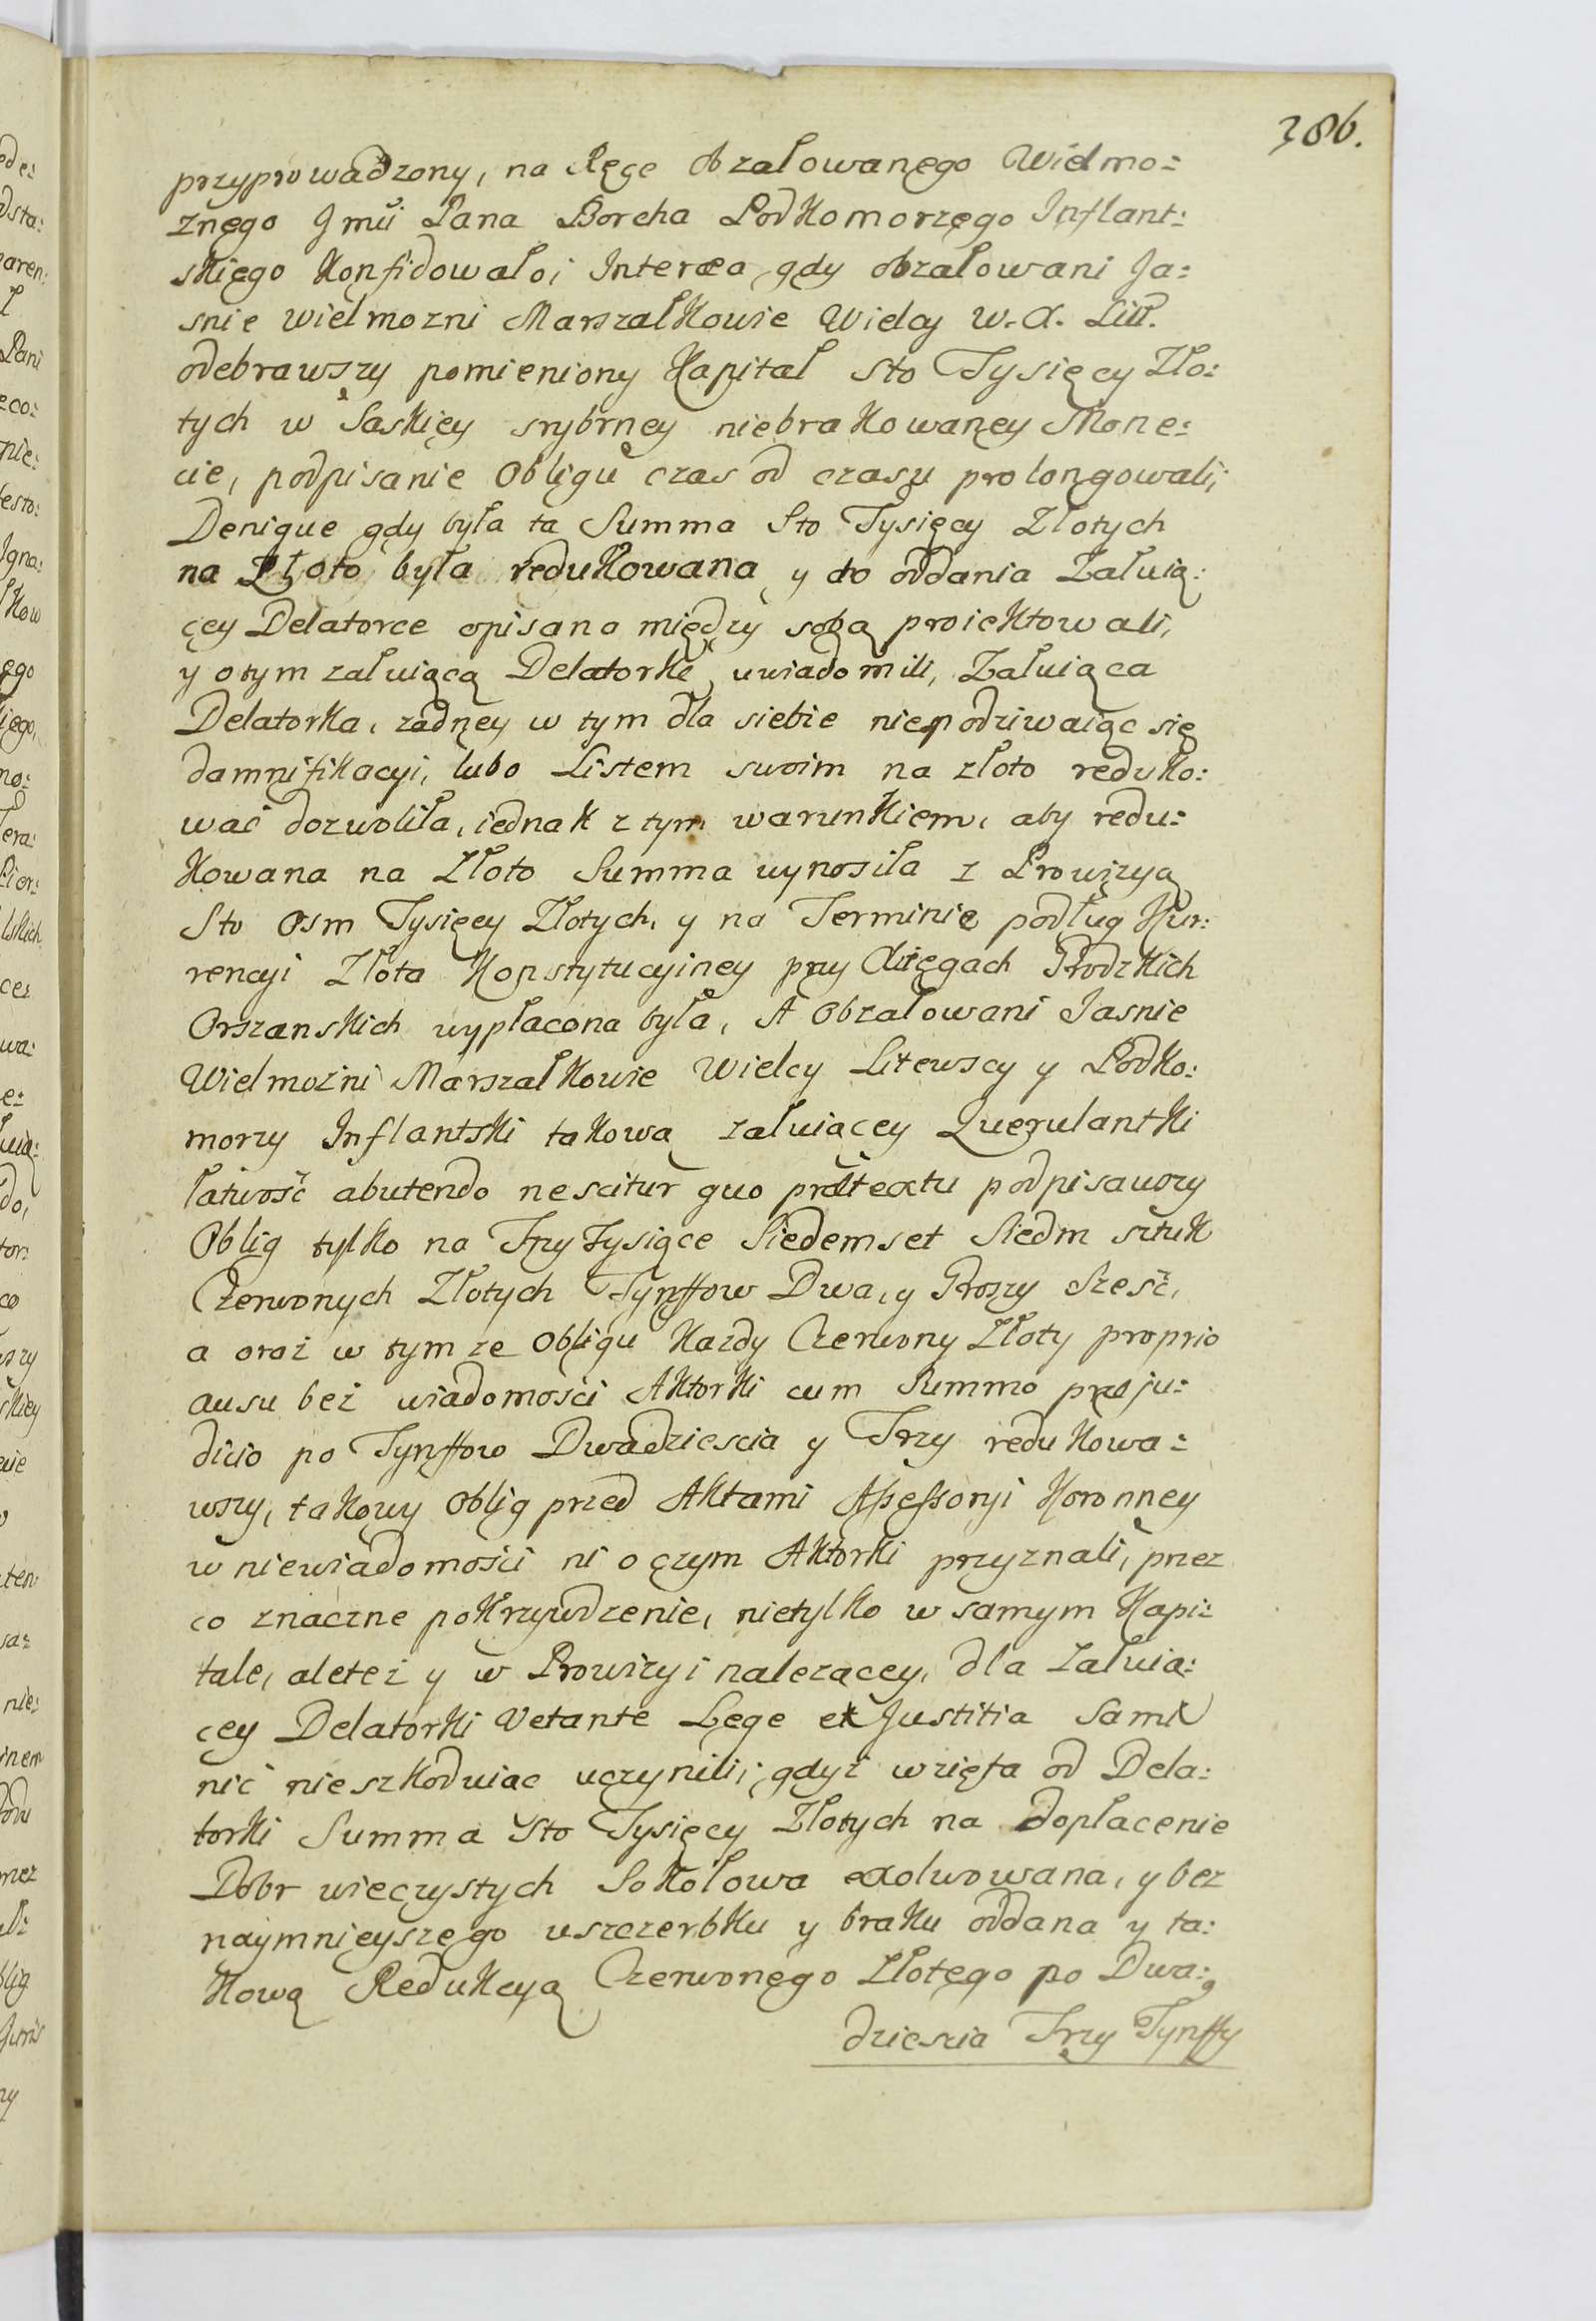 386.
przyprowadzony, na Ręce obzałowanego Wielmo:
znego Jmći Pana Borcha Podkomorzego Inflant:
skiego Konfidowało; Interea gdy obzałowani Ja:
snie wielmozni Marszałkowie Wielcy W. X. Litt.
odebrawszy pomieniony Kapitał Sto Tysięcy Zło:
tych w Saskiey srybrney niebrakowaney Mone:
cie, podpisanie Obligu czas od czasu prolongowali,
Denique gdy była ta Summa Sto Tysięcy Złotych
na Złoto była redukowana y do oddania Załuią:
cey Delatorce opisana między sobą proiektowali,
y o tym załuiącą Delatorkę uwiadomili, Załuiąca
Delatorka, zadney w tym dla siebie niespodziwaiąc się
damnifikacyi, lubo Listem swoim na złoto reduko:
wać dozwoliła, iednak z tym warunkiem, aby redu:
kowana na Złoto Summa wynosiła z Prowizyą
Sto Osm Tysięcy Złotych, y na Terminie podług Kur:
rencyi Złota Konstytucyiney przy Xięgach Grodzkich
Orszanskich wypłacona była, A Obzałowani Jasnie
Wielmożni Marszałkowie Wielcy Litewscy y Podko:
morzy Inflantski takową załuiącey Querulantki
łatwość abutendo nescitur quo prætextu podpisawszy
Oblig tylko na Trzy Tysiące Siedemset Siedm sztuk
Czerwonych Złotych Tynffow Dwa, y Groszy Sześć,
a oraz w tym ze Obligu Kazdy Czerwony Złoty proprio
ausu bez wiadomości Aktorki cum Summo præju:
dicio po Tynffow Dwadziescia y Trzy redukowa:
wszy, takowy Oblig przed Aktami Assessoryi Koronney
w niewiadomości ni o czym Aktorki przyznali, przez
co znaczne pokrzywdzenie, nietylko w samym Kapi:
tale, aleteż y w Prowizyi nalezącey, dla Załuią:
cey Delatorki Vetante Lege et Justitia Sami
nić nieszkoduiąc uczynili; gdyż wzięta od Dela:
torki Summa Sto Tysięcy Złotych na dopłacenie
Dobr wieczystych Sokołowa exolwowana, y bez
naymnieyszego uszczerbku y braku oddana y ta:
kową Redukcyą Czerwonego Złotego po Dwa:
dziescia Trzy Tynffy